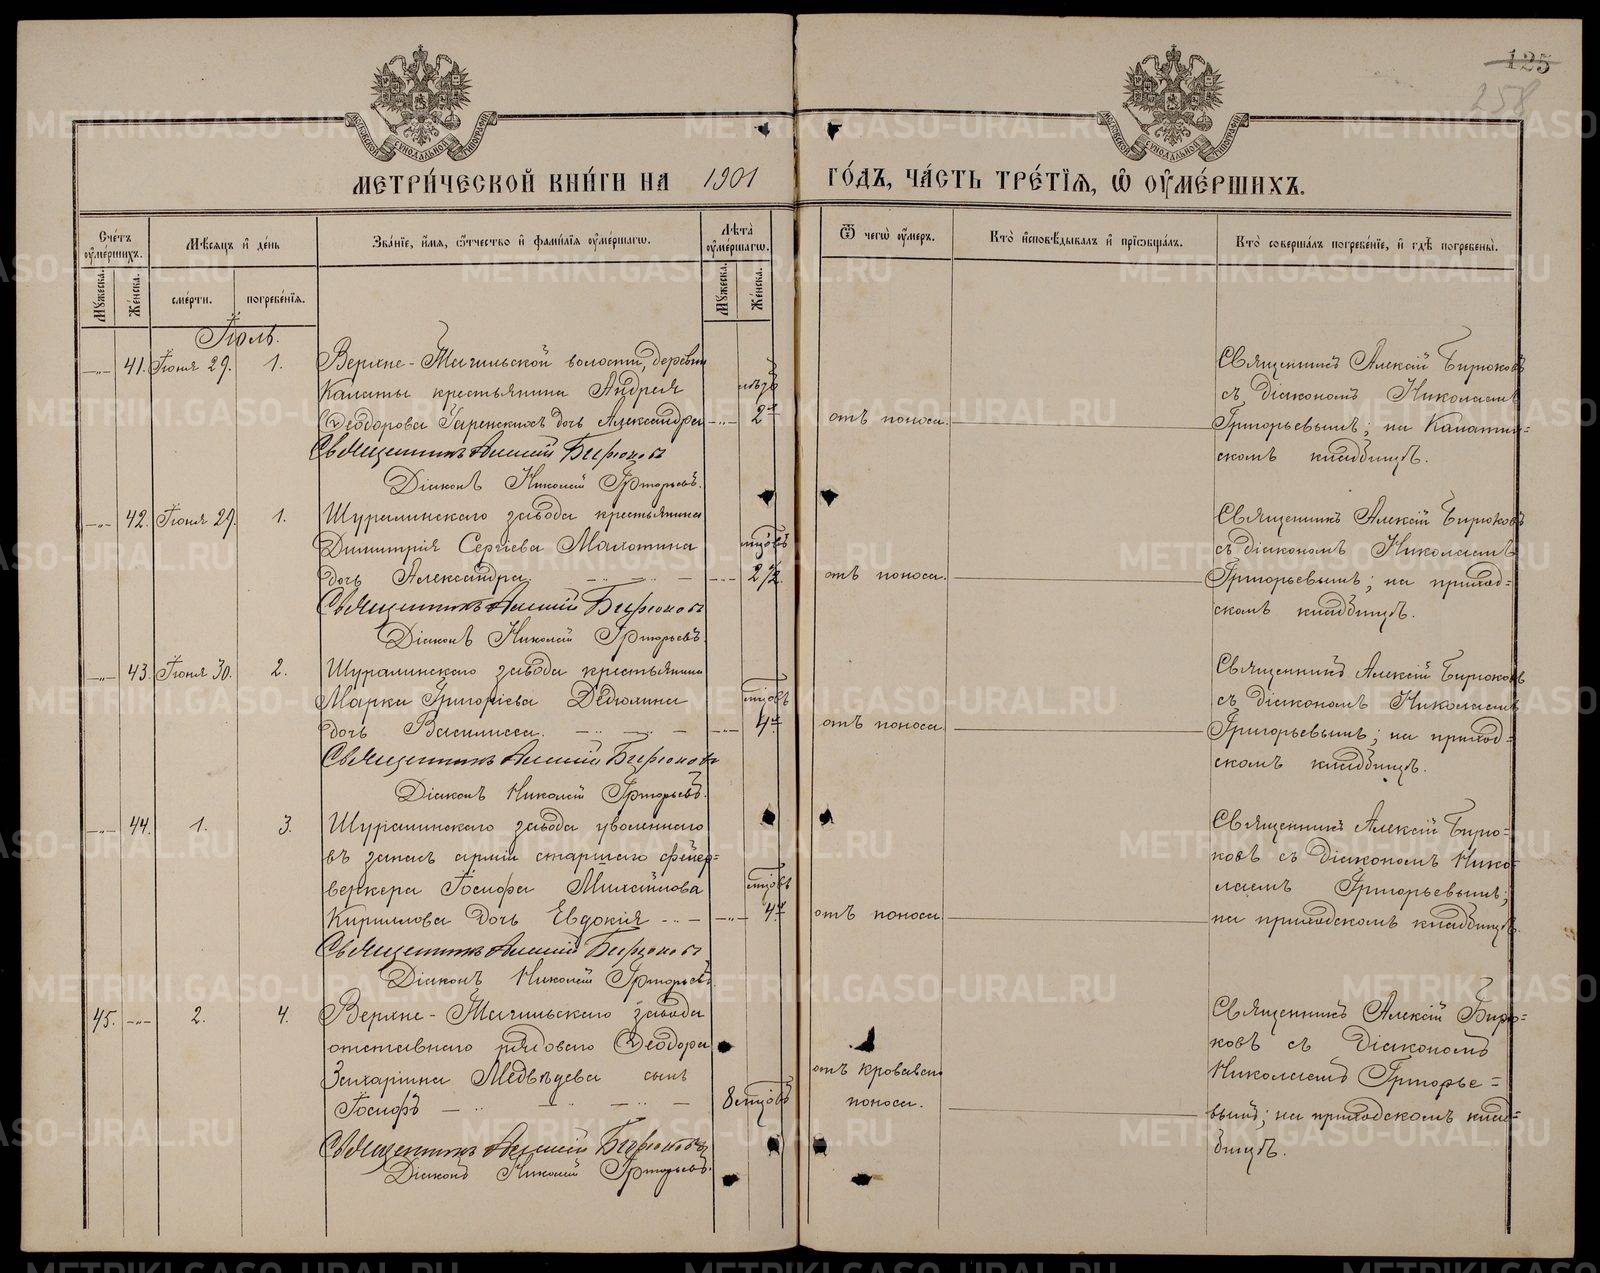 125
258
МОСКОВСКОЙ СѴНОДАЛЬНОЙ ТИПОГРАФІИ
МОСКОВСКОЙ СѴНОДАЛЬНОЙ ТИПОГРАФІИ
МЕТРИ́ЧЕСКОЙ КНИ́ГИ НА 1901 ГО́ДЪ, ЧА́СТЬ ТРЕ́ТІѦ, Ѡ҆ ОУ҆МЕ́РШИХЪ.
Сче́тъ оу҆ме́ршихъ.
Мѣ́сяцъ и҆ де́нь
Зва́нїе, и҆́мя, ѻ҆́тчество и҆ фами́лїя оу҆ме́ршагѡ.
Лѣ́та оу҆ме́ршагѡ.
Ѿ чегѡ̀ оу҆́меръ.
Кто̀ и҆сповѣ́дывалъ и҆ прїѡбща́лъ.
Кто̀ соверша́лъ погребе́нїе, и҆ гдѣ̀ погребены̀.
Мꙋ́жеска.
Же́нска.
сме́рти.
погребе́нїя.
Мꙋ́жеска.
Же́нска.
Іюль.
—„— 41. Іюня 29. 1.
Верхне-Тагильской волости, деревни
Калаты крестьянина Андрея
Ѳеодорова Гаренскихъ дочь Александра —„— 2
Священникъ Алексій Бирюковъ
Діаконъ Николай Григорьевъ.
отъ поноса.
Священникъ Алексій Бирюковъ
съ діакономъ Николаемъ
Григорьевымъ; на Калатин=
скомъ кладбищѣ.
—„— 42. Іюня 29. 1.
Шуралинскаго завода крестьянина
Димитрія Сергіева Малотина
дочь Александра. —„— 2 1/2
Священникъ Алексій Бирюковъ
Діаконъ Николай Григорьевъ.
отъ поноса.
Священникъ Алексій Бирюковъ
съ діакономъ Николаемъ
Григорьевымъ; на приход=
скомъ кладбищѣ.
—„— 43. Іюня 30. 2.
Шуралинскаго завода крестьянина
Марка Григоріева Дедюлина мѣсяцовъ
дочь Василисса. —„— 4
Священникъ Алексій Бирюковъ
Діаконъ Николай Григорьевъ.
отъ поноса.
Священникъ Алексій Бирюковъ
съ діакономъ Николаемъ
Григорьевымъ; на приход=
скомъ кладбищѣ.
—„— 44. 1. 3.
Шуралинскаго завода уволеннаго
въ запасъ арміи старшаго фейер=
веркера Іосифа Михайлова
Кириллова дочь Евдокія —„— 4
Священникъ Алексій Бирюковъ
Діаконъ Николай Григорьевъ.
отъ поноса.
Священникъ Алексій Бирю=
ковъ съ діакономъ Нико=
лаемъ Григорьевымъ;
на приходскомъ кладбищѣ.
45. —„— 2. 4.
Верхне-Тагильскаго завода
отставнаго рядоваго Ѳеодора
Захарина Медвѣдева сынъ
Іосифъ 8
Священникъ Алексій Бирюковъ
Діаконъ Николай Григорьевъ.
отъ кроваваго
поноса.
Священникъ Алексій Бирю=
ковъ съ діакономъ
Николаемъ Григорье=
вымъ; на приходскомъ клад=
бищѣ.
METRIKI.GASO-URAL.RU